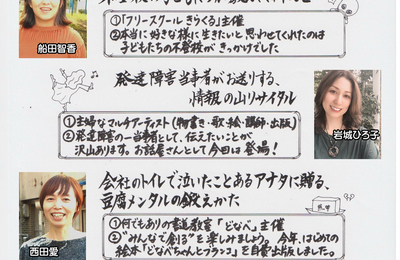 ①「フリースクール きらくる」主催
②本当に好きな様に生きたいと思わせてくれたのは
子どもたちの不登校がきっかけでした
船田智香
発達障害当事者がお送りする、
情報の山リサイタル
①主婦なマルチアーティスト(物書き・歌・絵・講師・出版)
②発達障害の一当事者として、伝えたいことが
沢山あります。お話屋さんとして今回は登場!
岩城ひろ子
会社のトイレで泣いたことあるアナタに贈る、
豆腐メンタルの鍛えかた
①何でもありの書道教室「どなべ」主催
②"みんなで創る"を楽しみましょう。今年、はじめての
絵本「どなべちゃんとフランス」を自費出版しました。
西田愛